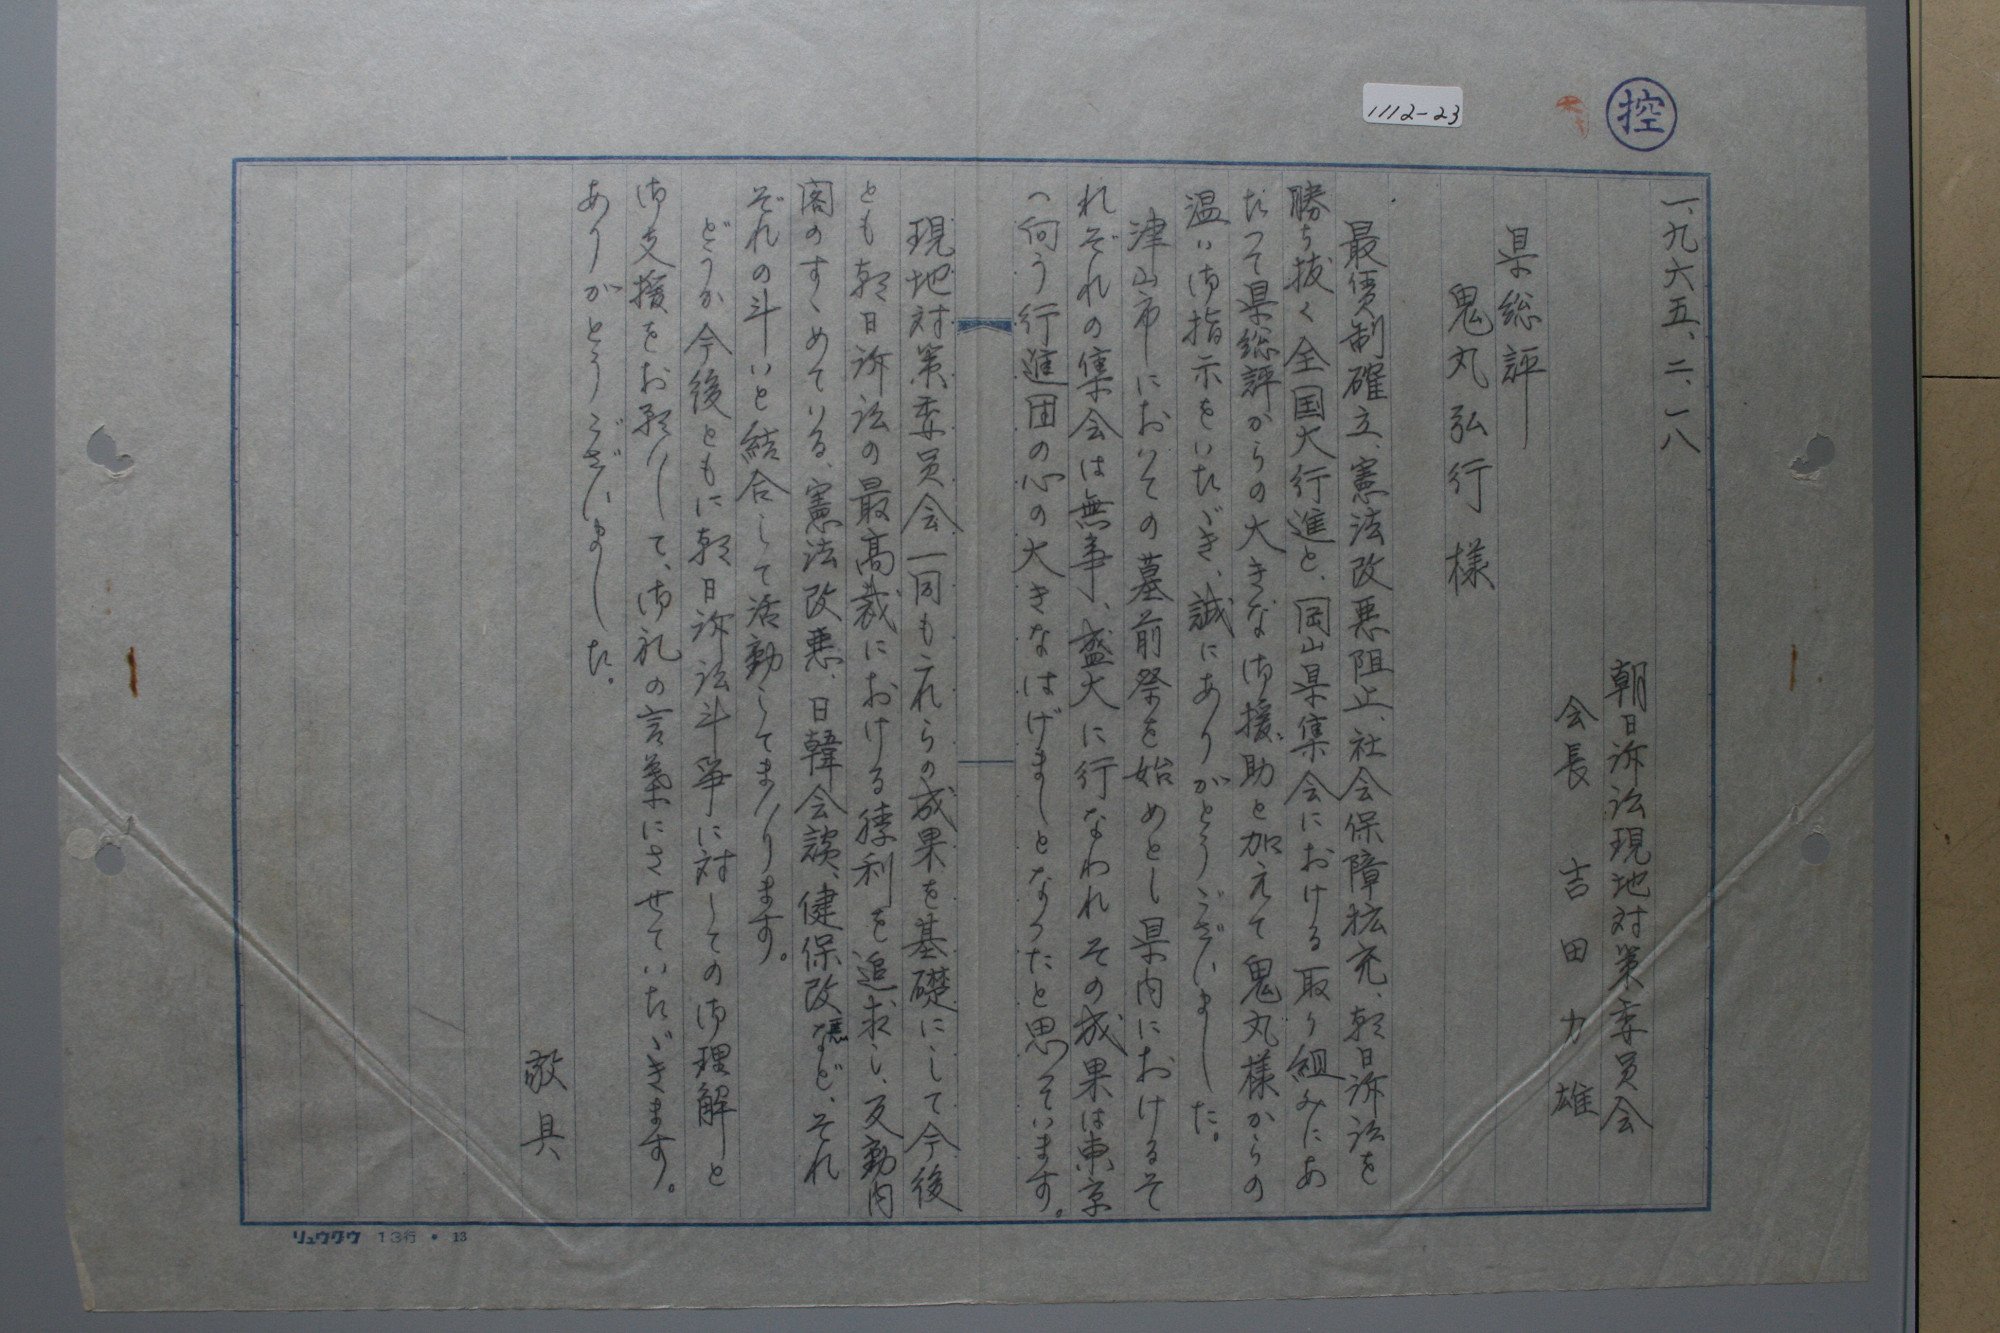 控
1112-23
一、九六五、二、一八
朝日訴訟現地対策委員会
会長 吉田力雄
県総評
鬼丸弘行様
最賃制確立、憲法改悪阻止、社会保障拡充、朝日訴訟を
勝ち抜く全国大行進と、岡山県集会における取り組みにあ
たって県総評からの大きな御援助と加えて鬼丸様からの
温い御指示をいたゞき、誠にありがとうございました。
津山市においての墓前祭を始めとし県内におけるそ
れぞれの集会は無事、盛大に行なわれその成果は東京
へ向う行進団の心の大きなはげましとなったと思っています。
現地対策委員会一同もこれらの成果を基礎にして今後
とも朝日訴訟の最高裁における勝利を追求し、反動内
閣のすゝめている、憲法改悪、日韓会談、健保改悪など、それ
ぞれの斗いと結合して活動してまいります。
どうか今後ともに朝日訴訟斗争に対しての御理解と
御支援をお願いして、御礼の言葉にさせていたゞきます。
ありがとうございました。
敬具
リュウグウ 13行・13